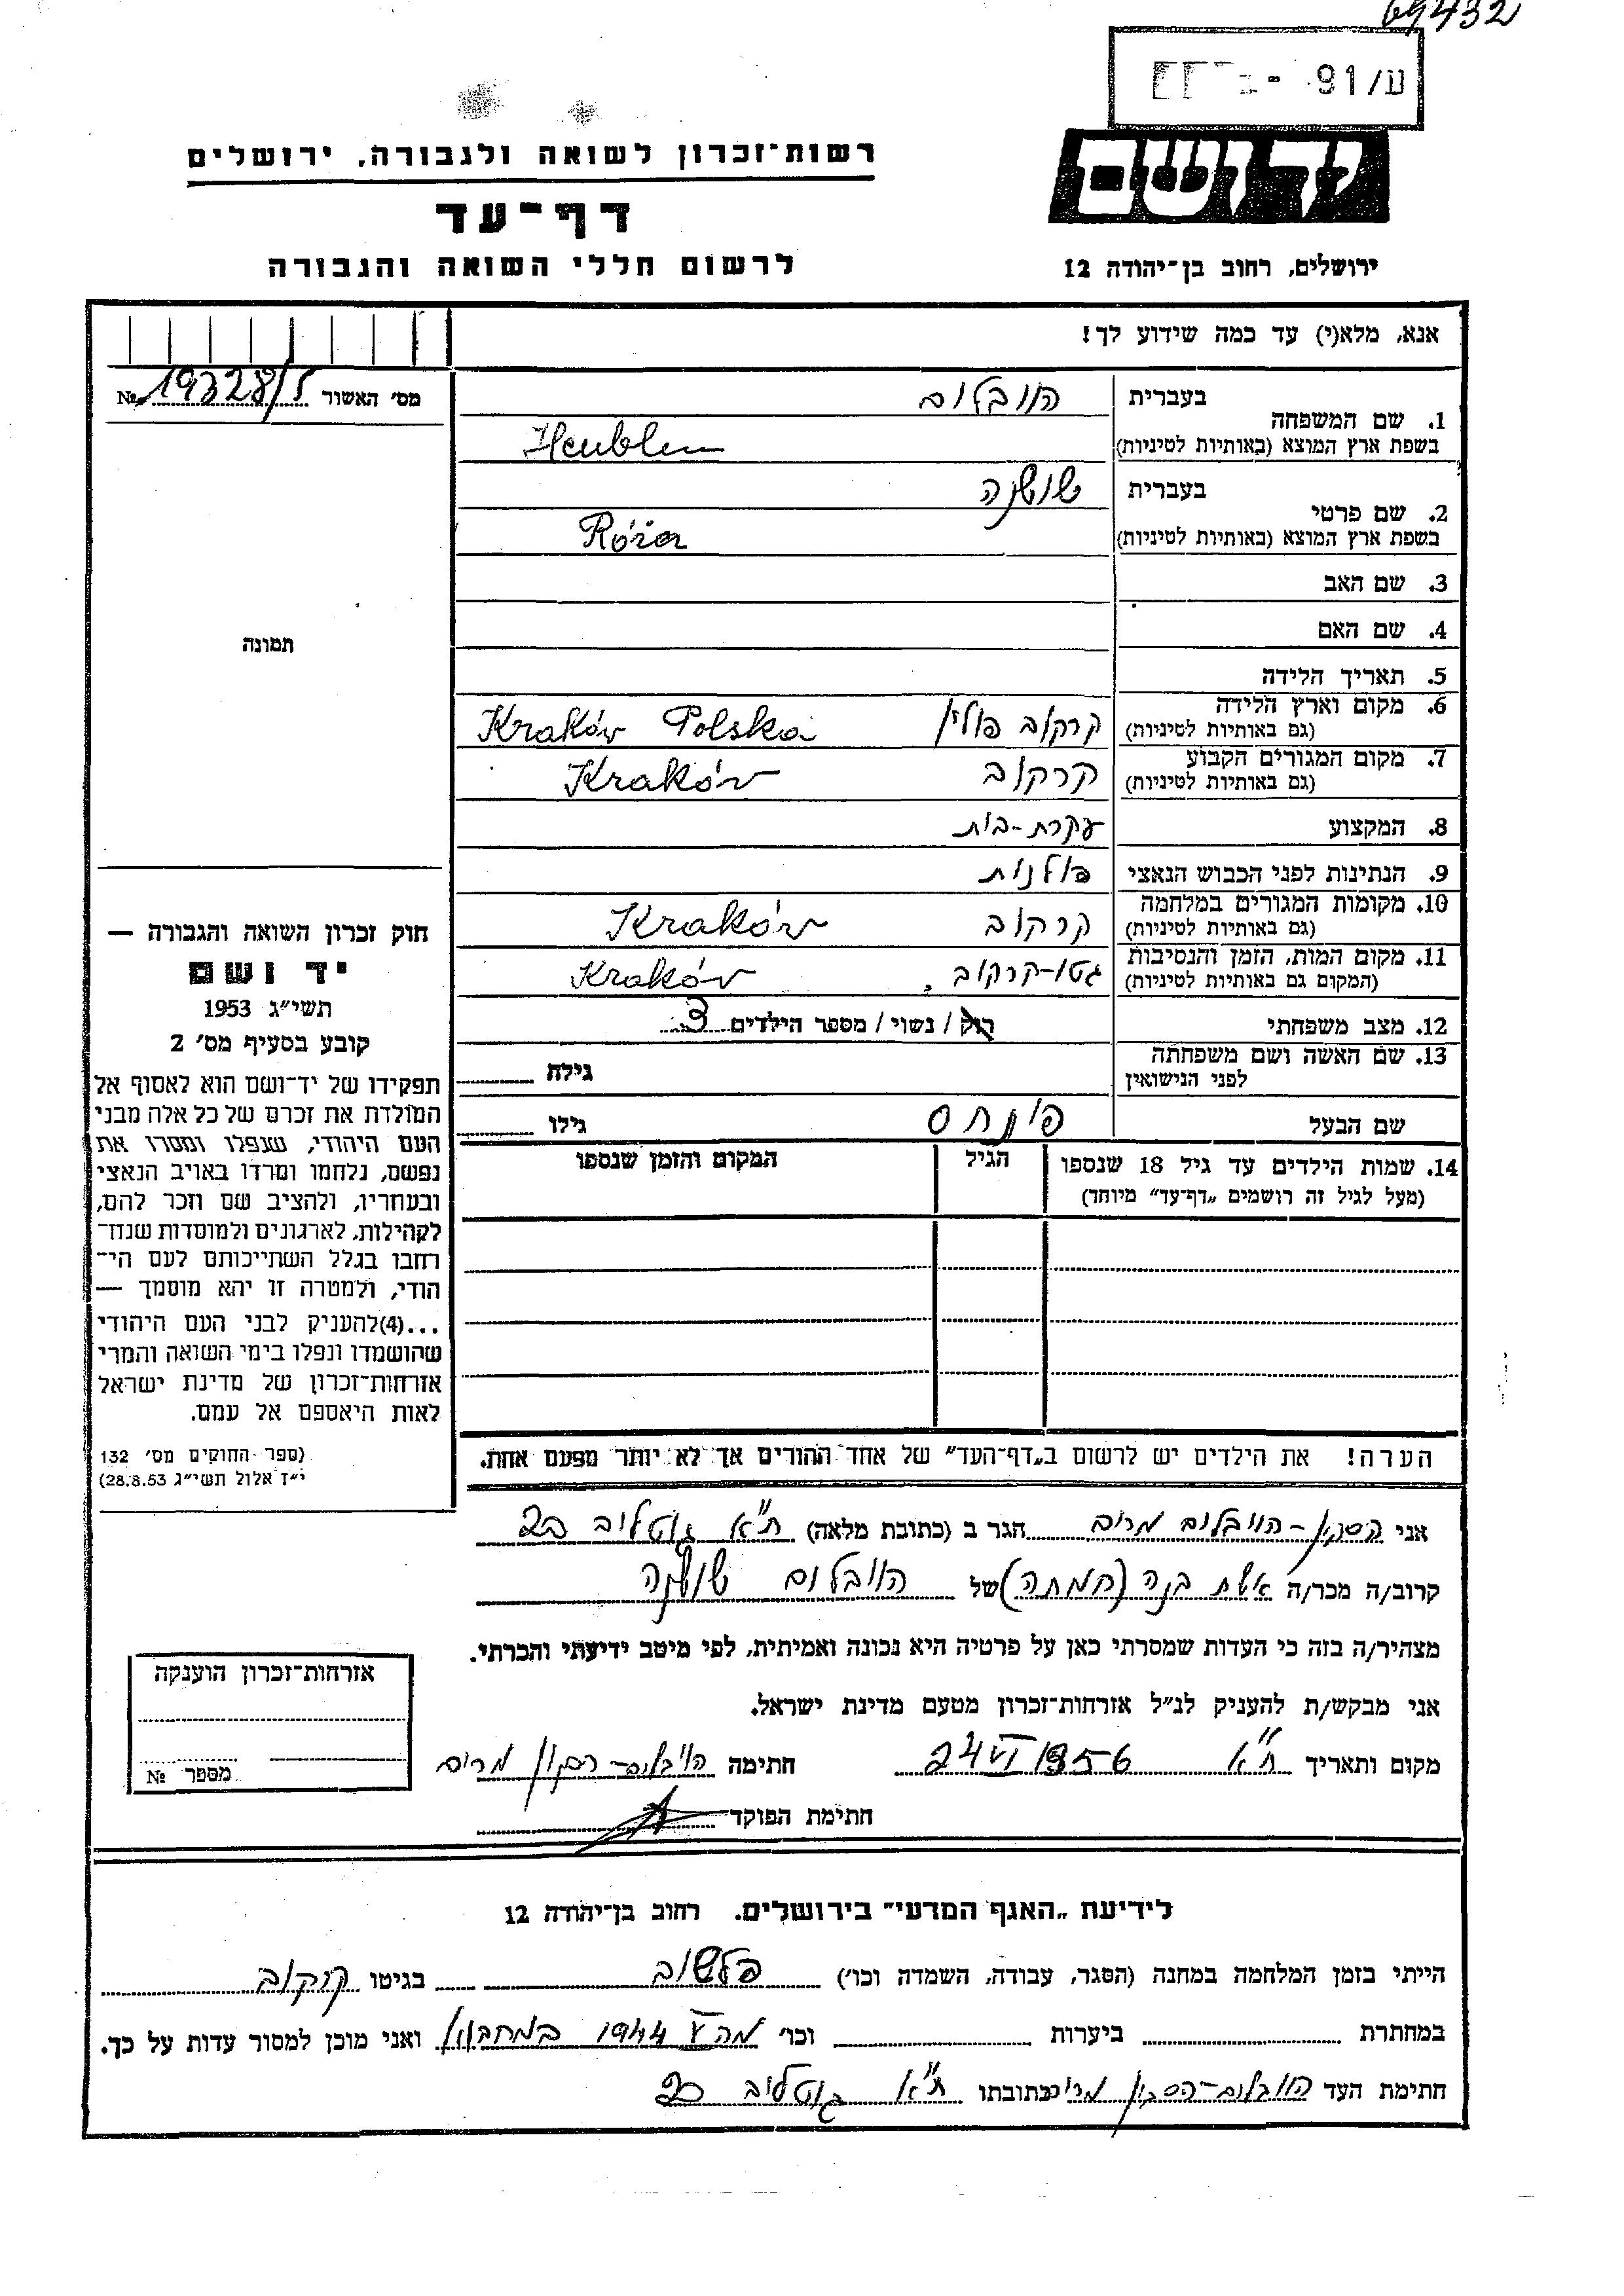 69432
ע/91 -
יד ושם
רשות־זכרון לשואה ולגבורה, ירושלים
דף־עד
לרשום חללי השואה והגבורה
ירושלים, רחוב בן־יהודה 12
אנא, מלא(י) עד כמה שידוע לך!
מס׳ האשור 19328/5 №
1. שם המשפחה
בעברית
הויבלום
בשפת ארץ המוצא (באותיות לטיניות)
Heublum
2. שם פרטי
בעברית
שושנה
בשפת ארץ המוצא (באותיות לטיניות)
Róża
3. שם האב
4. שם האם
תמונה
5. תאריך הלידה
6. מקום וארץ הלידה
(גם באותיות לטיניות)
קרקוב פולין Kraków Polska
7. מקום המגורים הקבוע
(גם באותיות לטיניות)
קרקוב Kraków
8. המקצוע
עקרת-בית
9. הנתינות לפני הכבוש הנאצי
פולנית
10. מקומות המגורים במלחמה
(גם באותיות לטיניות)
קרקוב Kraków
11. מקום המות, הזמן והנסיבות
(המקום גם באותיות לטיניות)
גטו-קרקוב. Kraków
12. מצב משפחתי
רוק / נשוי / מספר הילדים 3
13. שם האשה ושם משפחתה
לפני הנישואין
גילה
שם הבעל פינחס גילו
14. שמות הילדים עד גיל 18 שנספו
(מעל לגיל זה רושמים „דף־עד״ מיוחד)
הגיל
המקום והזמן שנספו
הערה! את הילדים יש לרשום ב„דף־העד״ של אחד ההורים אך לא יותר מפעם אחת.
חוק זכרון השואה והגבורה —
יד ושם
תשי״ג 1953
קובע בסעיף מס׳ 2
תפקידו של יד־ושם הוא לאסוף אל
המולדת את זכרם של כל אלה מבני
העם היהודי, שנפלו ומסרו את
נפשם, נלחמו ומרדו באויב הנאצי
ובעוזריו, ולהציב שם וזכר להם,
לקהילות, לארגונים ולמוסדות שנח־
רחבו בגלל השתייכותם לעם הי־
הודי, ולמטרה זו יהא מוסמך —
...(4) להעניק לבני העם היהודי
שהושמדו ונפלו בימי השואה והמרי
אזרחות־זכרון של מדינת ישראל
לאות היאספם אל עמם.
(ספר החוקים מס׳ 132
י״ד אלול תשי״ג 28.8.53)
אני הסקן-הויבלום מרים הגר ב (כתובת מלאה) ת״א גוטליב 22
קרוב/ה מכר/ה אשת בנה (חמתה) של הויבלום שושנה
מצהיר/ה בזה כי העדות שמסרתי כאן על פרטיה היא נכונה ואמיתית, לפי מיטב ידיעתי והכרתי.
אני מבקש/ת להעניק לנ״ל אזרחות־זכרון מטעם מדינת ישראל.
מקום ותאריך ת״א 24 VI 1956 חתימה הויבלום- מרים
חתימת הפוקד
אזרחות־זכרון הוענקה
מספר №
לידיעת „האגף המדעי״ בירושלים. רחוב בן־יהודה 12
הייתי בזמן המלחמה במחנה (הסגר, עבודה, השמדה וכו׳) פלשוב בגיטו קרקוב
במחתרת ביערות וכו׳ 1944 ואני מוכן למסור עדות על כך.
חתימת העד הויבלום- מרים כתובתו ת״א גוטליב 22